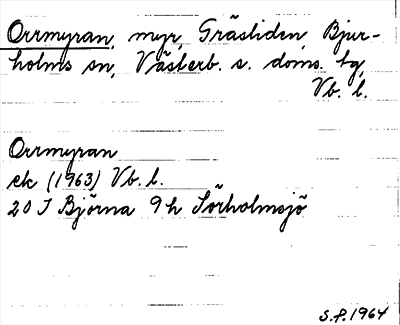 Orrmyran, myr, Gräsliden, Bjur-
holms sn, Västerb. s. doms. bg,
Vb. l.
Orrmyran
ek (1963) Vb. l.
20 J Björna 9h Sörholmsjö
S.P. 1964